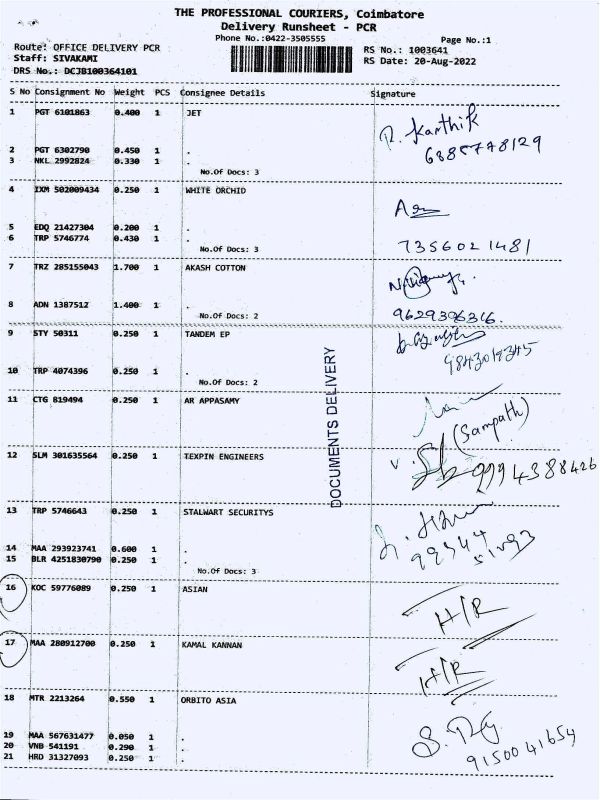 THE PROFESSIONAL COURIERS, Coimbatore
Delivery Runsheet - PCR
Phone No.:0422-3505555
Page No.:1
Route: OFFICE DELIVERY PCR
RS No.: 1003641
Staff: SIVAKAMI
RS Date: 20-Aug-2022
DRS No.: DCJB100364101
S No Consignment No Weight PCS Consignee Details Signature
1 PGT 6101863 0.400 1 JET
R. Karthik
2 PGT 6302790 0.450 1 .
3 NKL 2992824 0.330 1 .
No.Of Docs: 3
4 IXM 502009434 0.250 1 WHITE ORCHID
5 EDQ 21427304 0.200 1 .
6 TRP 5746774 0.430 1 .
No.Of Docs: 3 7356021481
7 TRZ 285155043 1.700 1 AKASH COTTON
8 ADN 1387512 1.400 1 .
No.Of Docs: 2 9629396316.
9 STY 50311 0.250 1 TANDEM EP
10 TRP 4074396 0.250 1 .
No.Of Docs: 2
11 CTG 819494 0.250 1 AR APPASAMY
(Sampath)
12 SLM 301635564 0.250 1 TEXPIN ENGINEERS
9994388426
DOCUMENTS DELIVERY
13 TRP 5746643 0.250 1 STALWART SECURITYS
14 MAA 293923741 0.600 1 .
15 BLR 4251830790 0.250 1 .
No.Of Docs: 3
16 KOC 59776089 0.250 1 ASIAN
H/R
17 MAA 280912700 0.250 1 KAMAL KANNAN
H/R
18 MTR 2213264 0.550 1 ORBITO ASIA
19 MAA 567631477 0.050 1 .
20 VNB 541191 0.290 1 .
21 HRD 31327093 0.250 1 .
9150041654